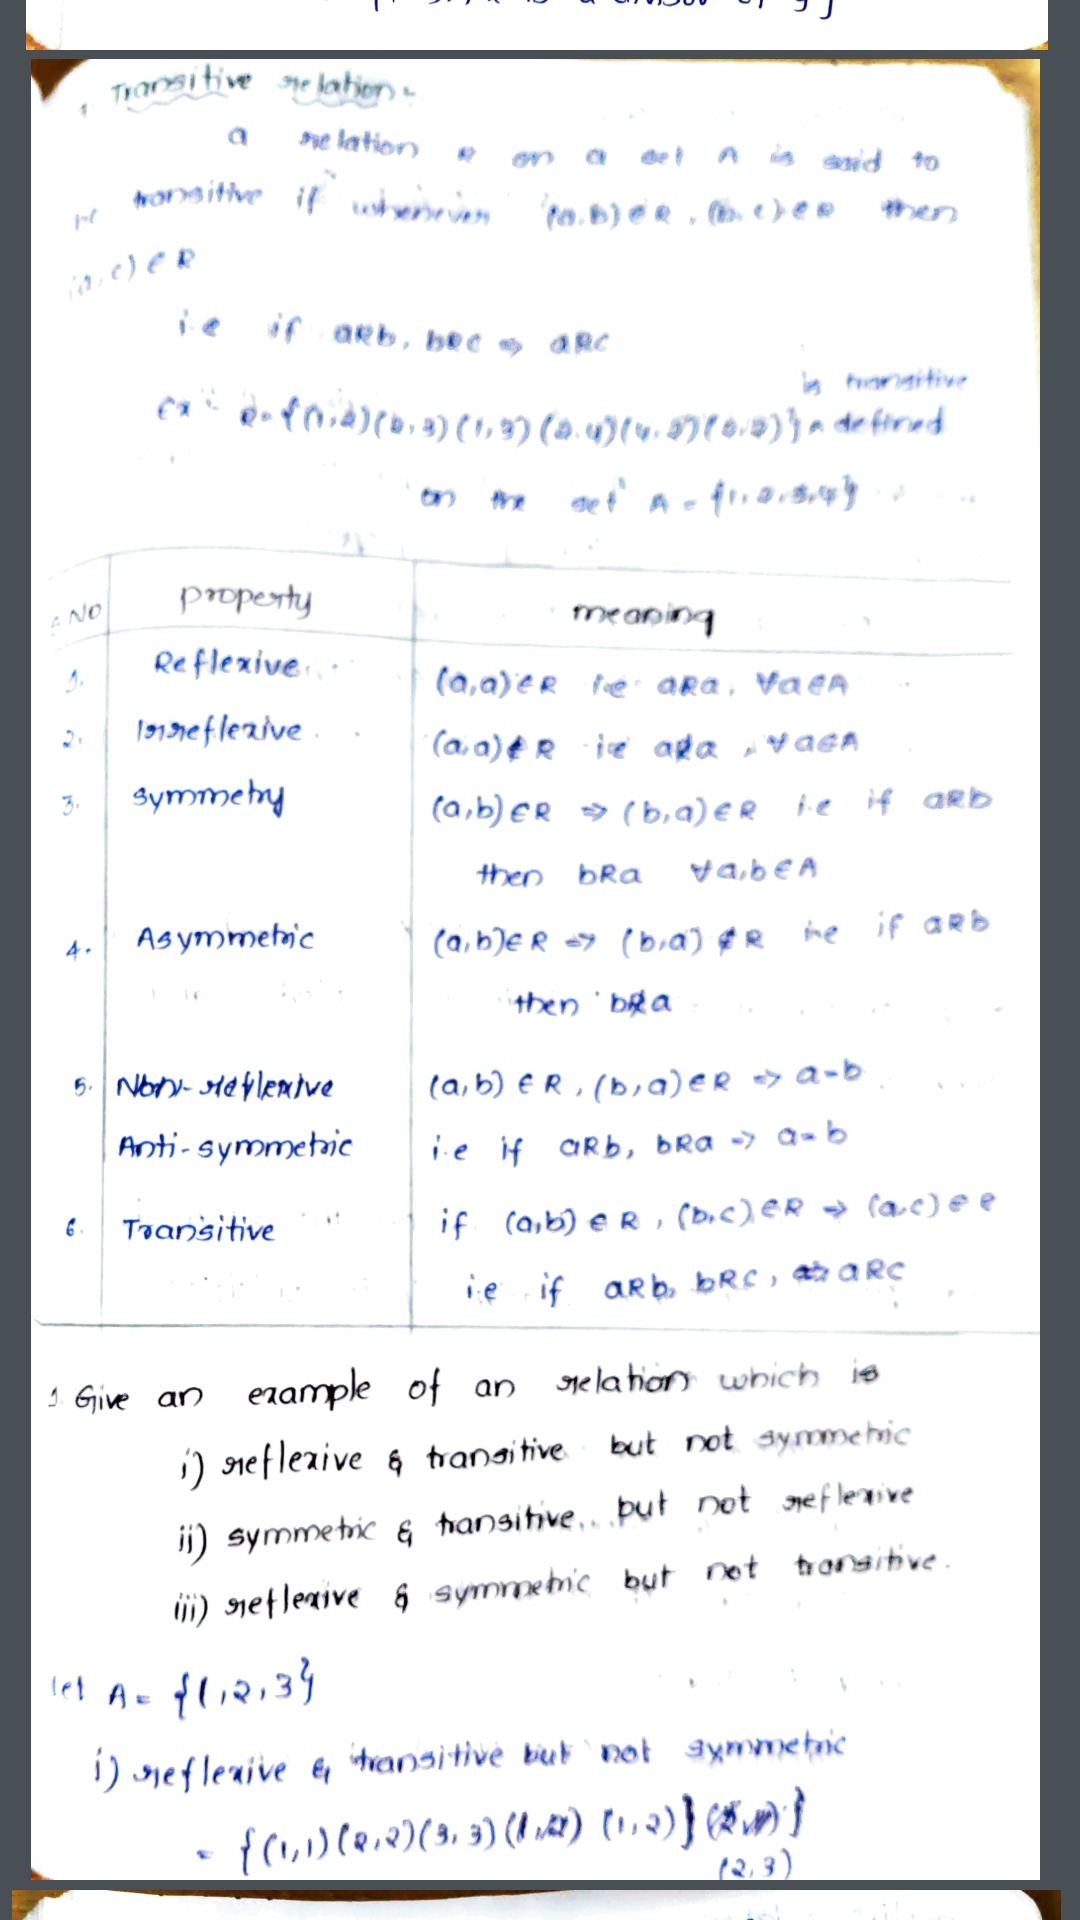 Transitive relation:
a relation R on a set A is said to
be transitive if whenever (a,b)∈R, (b,c)∈R then
(a,c)∈R
i.e if aRb, bRc ⇒ aRc
is transitive
Ex: R={(1,2)(2,3)(1,3)(2,4)} defined
on the set A = {1,2,3,4}
S.NO property meaning
1. Reflexive (a,a)∈R i.e aRa, ∀a∈A
2. Irreflexive (a,a)∉R i.e a R̸ a, ∀a∈A
3. symmetry (a,b)∈R ⇒ (b,a)∈R i.e if aRb
then bRa ∀a,b∈A
4. Asymmetric (a,b)∈R ⇒ (b,a)∉R i.e if aRb
then b R̸ a
5. Non-reflexive (a,b)∈R, (b,a)∈R ⇒ a=b
Anti-symmetric i.e if aRb, bRa ⇒ a=b
6. Transitive if (a,b)∈R, (b,c)∈R ⇒ (a,c)∈R
i.e if aRb, bRc, aRc
1. Give an example of an relation which is
i) reflexive & transitive but not symmetric
ii) symmetric & transitive but not reflexive
iii) reflexive & symmetric but not transitive.
let A = {1,2,3}
i) reflexive & transitive but not symmetric
= {(1,1)(2,2)(3,3) (1,2)} }
(2,3)